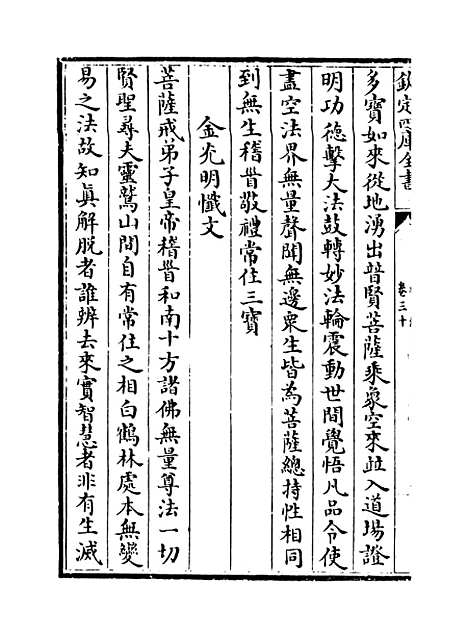 欽定四庫全書
卷三十
多寶如來從地湧出普賢菩薩乘象空來竝入道場證
明功德擊大法鼓轉妙法輪震動世間覺悟凡品令使
盡空法界無量聲聞無邊衆生皆為菩薩總持性相同
到無生稽首敬禮常住三寶
金光明懺文
菩薩戒弟子皇帝稽首和南十方諸佛無量尊法一切
賢聖尋夫靈鷲山間自有常住之相白鶴林處本無變
易之法故知真解脱者誰辨去來實智慧者非有生滅